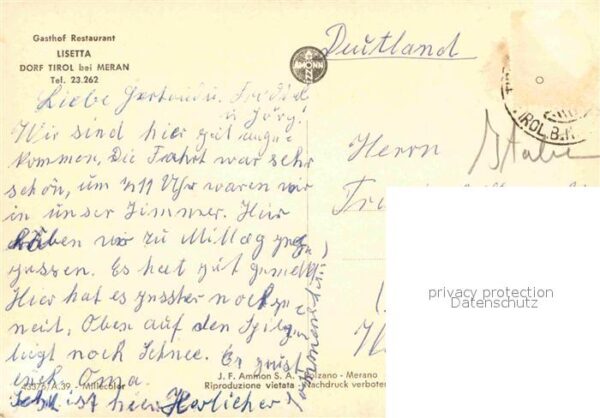 Gasthof Restaurant
LISETTA
DORF TIROL bei MERAN
Tel. 23.262
AMONN
Deutland
Liebe Gertrud u. Friedel
u. Jörg.
Wir sind hier gut ange
kommen, Die Fahrt war sehr
schön, um 11 Uhr waren wir
in unser Zimmer. Hier
haben wir zu Mittag
gessen. Es hat gut
Hier hat es gester noch
neit, Oben auf den
liegt noch Schnee. Es grüst
euch Oma.
ist hier Herlicher
Herrn
TIROL.B.
privacy protection
Datenschutz
43375/A.39 - Millecolor
J. F. Amonn S. A. Bolzano - Merano
Riproduzione vietata - Nachdruck verboten